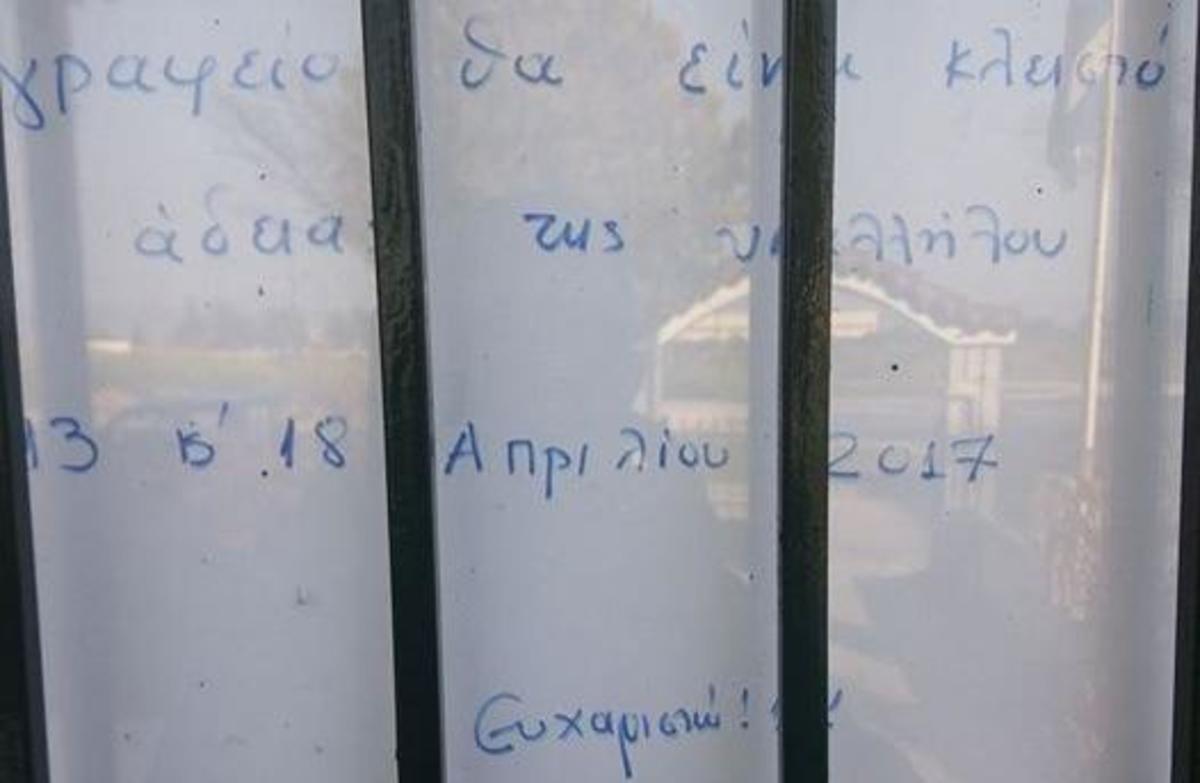 γραφείο θα είναι κλειστό
άδεια της υπαλλήλου
13 &' 18 Απριλίου 2017
Ευχαριστώ!!!